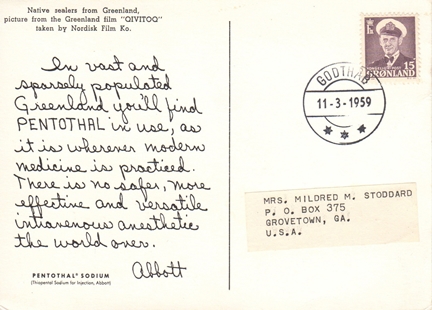 Native sealers from Greenland,
picture from the Greenland film "QIVITOQ"
taken by Nordisk Film Ko.
In vast and
sparsely populated
Greenland you'll find
PENTOTHAL in use, as
it is wherever modern
medicine is practiced.
There is no safer, more
effective and versatile
intravenous anesthetic
the world over.
Abbott
PENTOTHAL® SODIUM
(Thiopental Sodium for Injection, Abbott)
GODTHÅB
11-3-1959
15
GRØNLAND
MRS. MILDRED M. STODDARD
P. O. BOX 375
GROVETOWN, GA.
U.S.A.